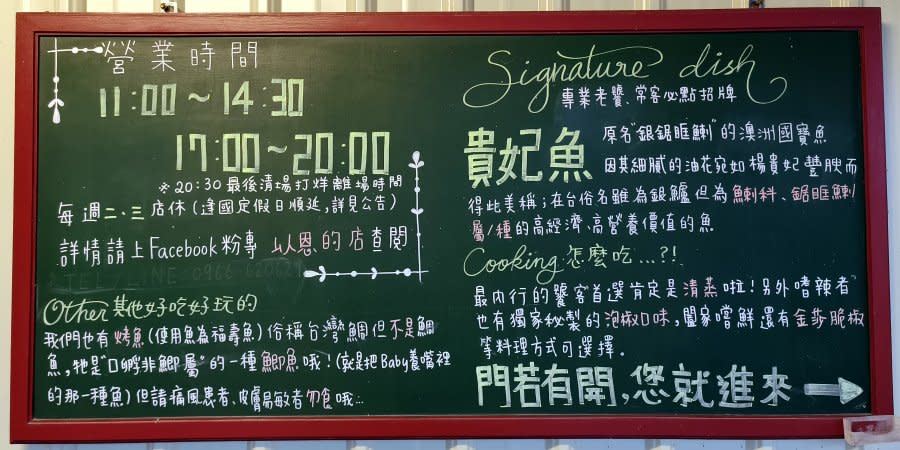 營業時間
11:00~14:30
17:00~20:00
※20:30最後清場打烊離場時間
每週二.三店休(逢國定假日順延,詳見公告)
詳情請上Facebook粉專 以恩的店查閱
Other其他好吃好玩的
我們也有烤魚(使用魚為福壽魚)俗稱台灣鯛但不是鯛
魚,牠是"口孵非鯽屬"的一種鯽魚哦!(就是把Baby養嘴裡
的那一種魚)但請痛風患者、皮膚易敏者勿食哦...
Signature dish
專業老饕、常客必點招牌
貴妃魚
原名"銀鋸眶鯻"的澳洲國寶魚
因其細膩的油花宛如楊貴妃豐腴而
得此美稱;在台俗名雖為銀鱸但為鯻科、鋸眶鯻
屬/種的高經濟、高營養價值的魚
Cooking 怎麼吃...?!
最內行的饕客首選肯定是清蒸啦!另外"嗜辣者"
也有獨家秘製的泡椒口味,闔家嚐鮮還有金莎脆椒
等料理方式可選擇。
門若有開,您就進來